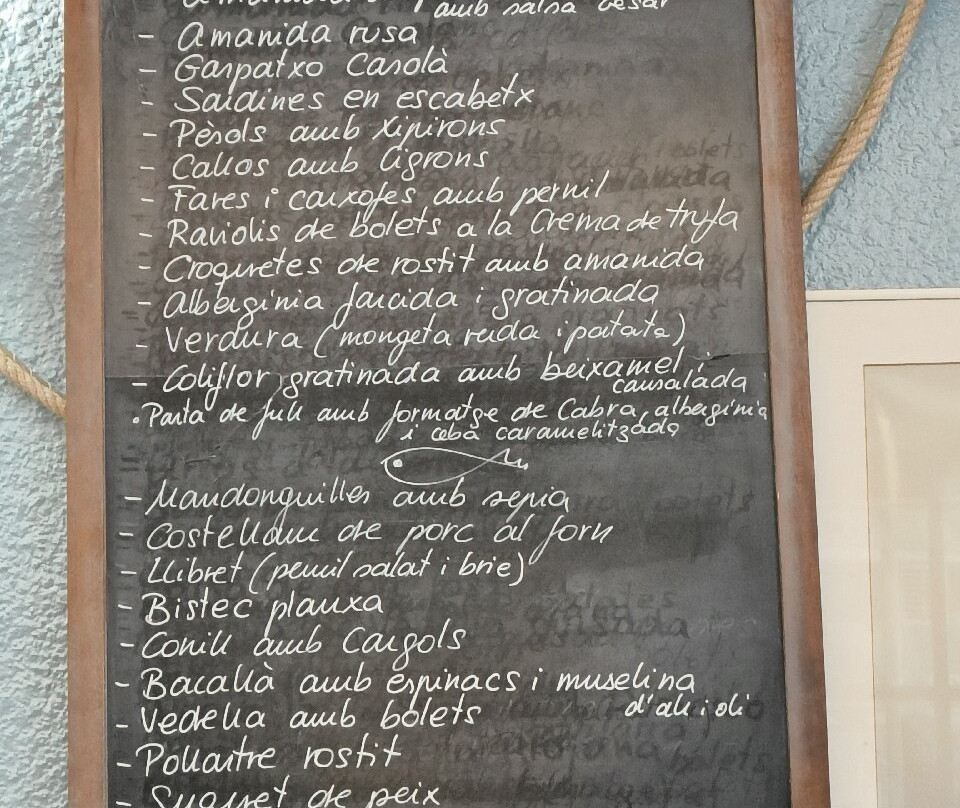 amb salsa cesar
- Amanida rusa
- Gaspatxo Casolà
- Sardines en escabetx
- Pèsols amb Xipirons
- Callos amb Cigrons
- Faves i carxofes amb pernil
- Raviolis de bolets a la Crema de trufa
- Croquetes de rostit amb amanida
- Albegínia farcida i gratinada
- Verdura (mongeta verda i patata)
- Coliflor gratinada amb beixamel i
cansalada
• Pasta de full amb formatge de Cabra, albergínia
i ceba caramelitzada
- Mandonguilles amb sepia
- Costellam de porc al forn
- Llibret (pernil salat i brie)
- Bistec planxa
- Conill amb Cargols
- Bacallà amb espinacs i muselina
d'all i oli
- Vedella amb bolets
- Pollastre rostit
- Suquet de peix